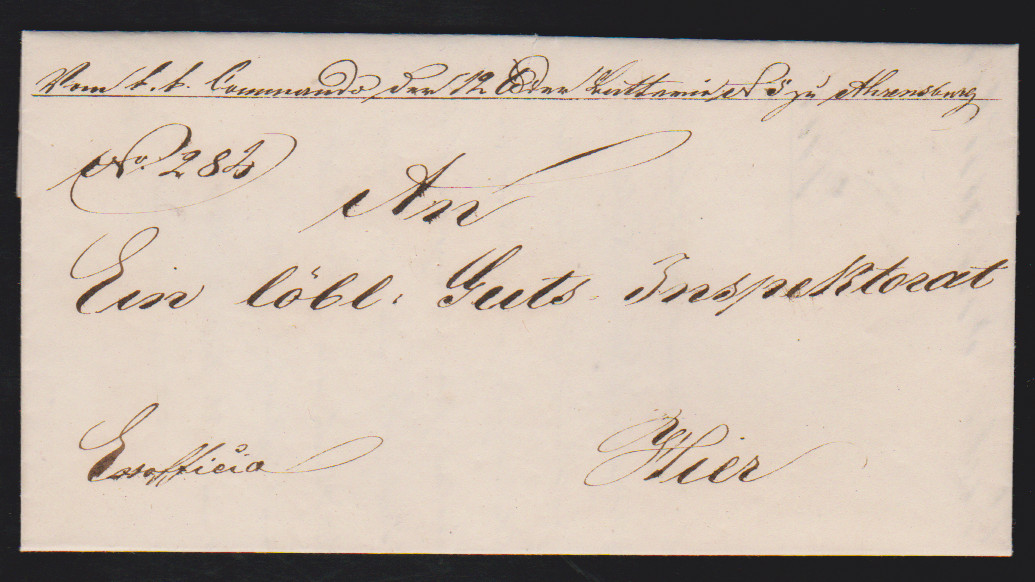 Vom k. k. Commando der 12 ℔der Batterie No 3 zu Ahrensburg
No. 284
An
Ein löbl: Guts-Inspektorat
Exofficio
Hier